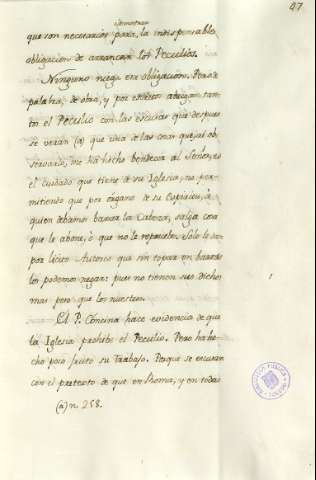 47
demostrar
que son necesarias para la indispensable
obligacion de arrancar los Peculios.
Ninguno niega esta obligacion. Pero de
palabra, de obra, y por escrito abrigan tan-
tos el Peculio con las escusas que despues
se verán (a) que una de las cosas que jai ob-
servado, me ha hecho bendecir al Señor, es
el cuidado que tiene de su Iglesia, no per-
mitiendo que por órgano de su Espiritu, á
quien debamos baxar la Cabeza, salga cosa
que le abone, ó que no le repruebe. Solo lo dan
por lícito Autores que sin topar en barras
los podemos negar: pues no tienen sus dichos
mas peso que los nuestros.
El P. Concina hace evidencia de que
la Iglesia prohibe el Peculio. Pero ha he-
cho poco fruto su trabajo. Porque se escusan
con el pretexto de que en Roma, y en todas
(a) n. 258.
BIBLIOTECA PUBLICA
TOLEDO